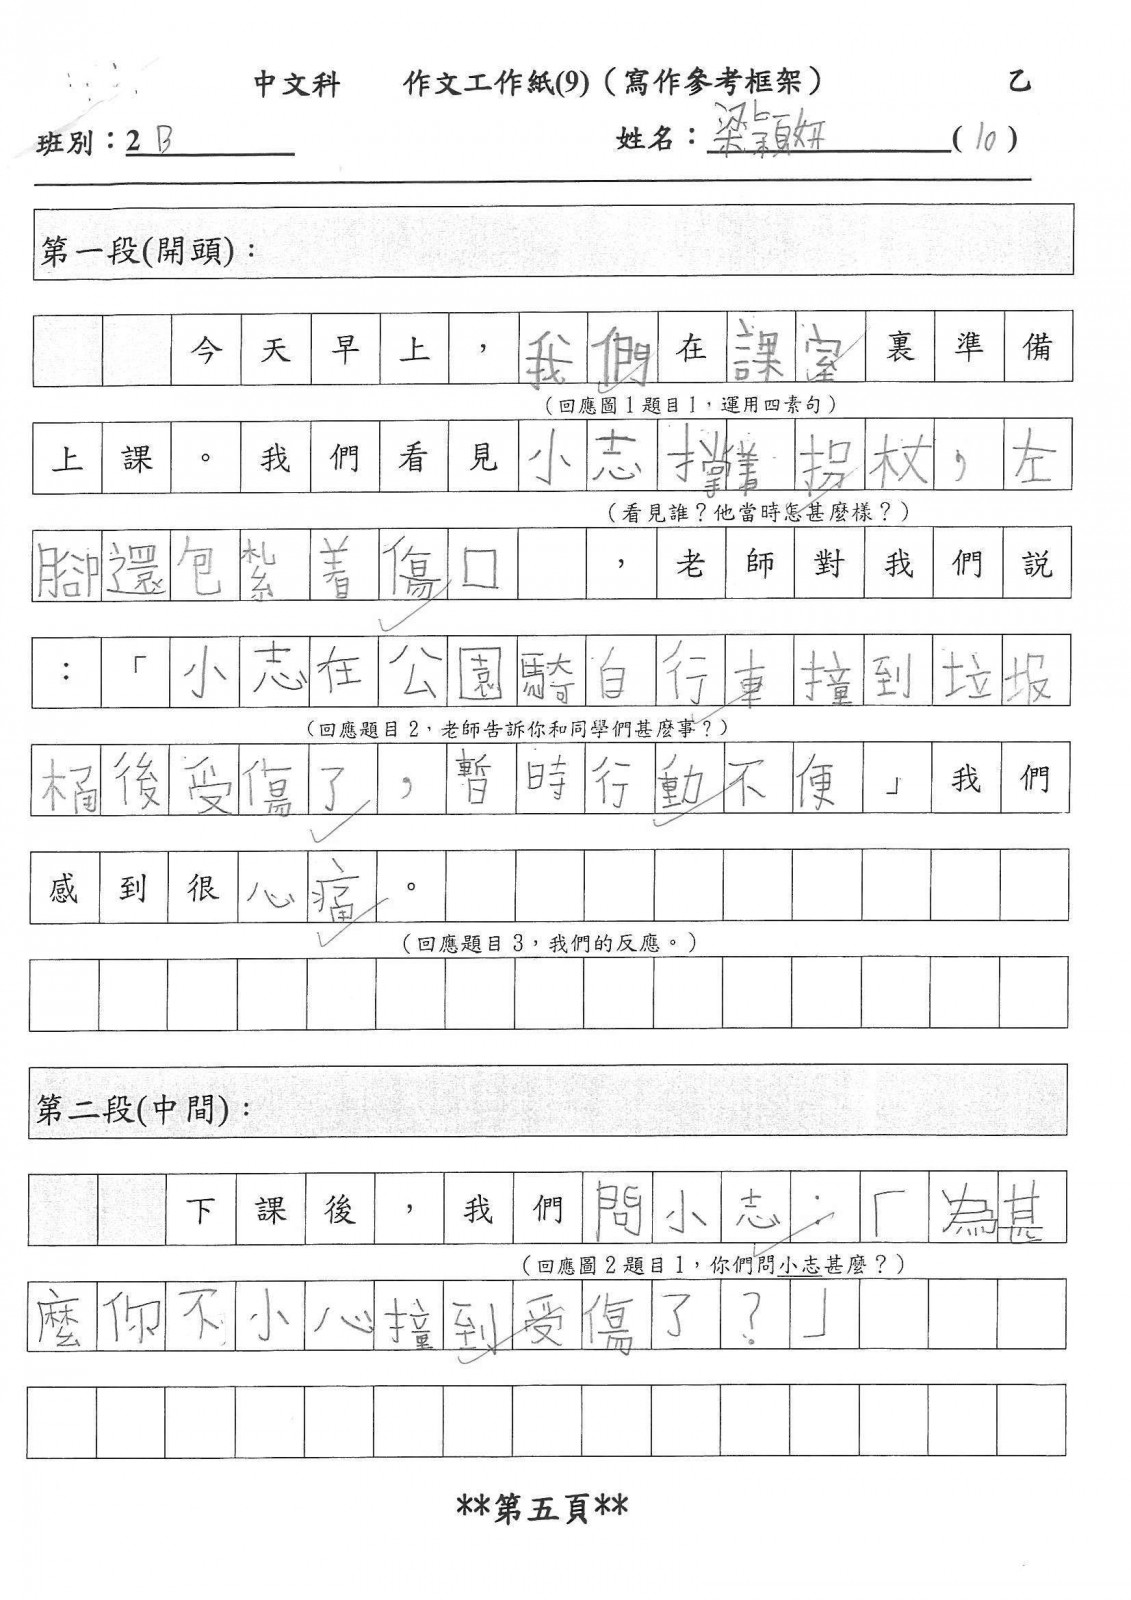 中文科　作文工作紙(9)（寫作參考框架）　乙
班別：2 B　姓名：梁穎妍 (10)
第一段(開頭)：
今天早上，我們在課室裏準備
（回應圖1題目1，運用四素句）
上課。我們看見小志撑着拐杖，左
（看見誰？他當時怎甚麼樣？）
腳還包紮着傷口，老師對我們説
：「小志在公園騎自行車撞到垃圾
（回應題目2，老師告訴你和同學們甚麼事？）
桶後受傷了，暫時行動不便」我們
感到很心痛。
（回應題目3，我們的反應。）
第二段(中間)：
下課後，我們問小志：「為甚
（回應圖2題目1，你們問小志甚麼？）
麼你不小心撞到受傷了？」
**第五頁**